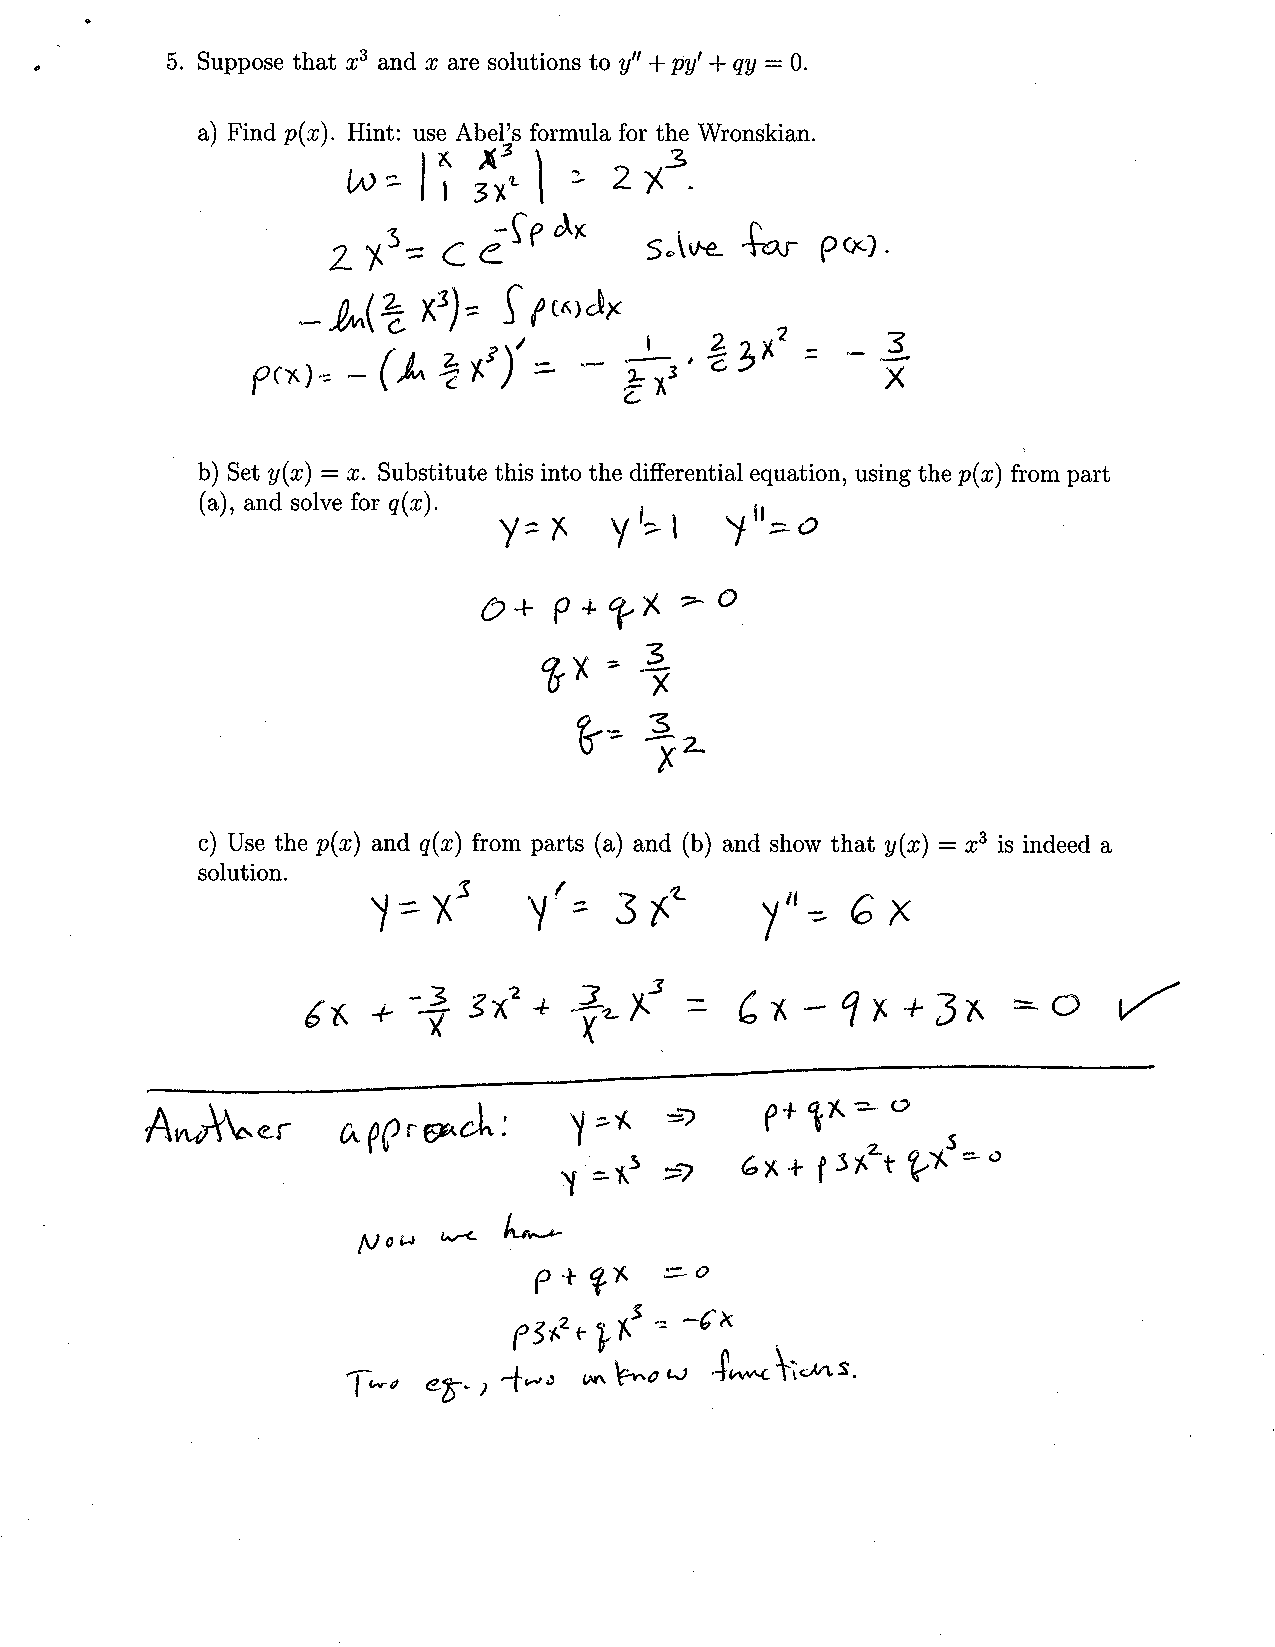 5. Suppose that x³ and x are solutions to y″ + py′ + qy = 0.
a) Find p(x). Hint: use Abel's formula for the Wronskian.
W = | x x³ ; 1 3x² | = 2x³.
2x³ = c e^{-∫p dx} solve for p(x).
- ln(2/c x³) = ∫ p(x)dx
p(x) = - (ln 2/c x³)′ = - 1/(2/c x³) · 2/c 3x² = - 3/x
b) Set y(x) = x. Substitute this into the differential equation, using the p(x) from part
(a), and solve for q(x).
y = x y′ = 1 y″ = 0
0 + p + qx = 0
qx = 3/x
q = 3/x²
c) Use the p(x) and q(x) from parts (a) and (b) and show that y(x) = x³ is indeed a
solution.
y = x³ y′ = 3x² y″ = 6x
6x + -3/x 3x² + 3/x² x³ = 6x - 9x + 3x = 0 ✓
Another approach: y = x ⇒ p + qx = 0
y = x³ ⇒ 6x + p3x² + qx³ = 0
Now we have
p + qx = 0
p3x² + qx³ = -6x
Two eq., two unknow functions.